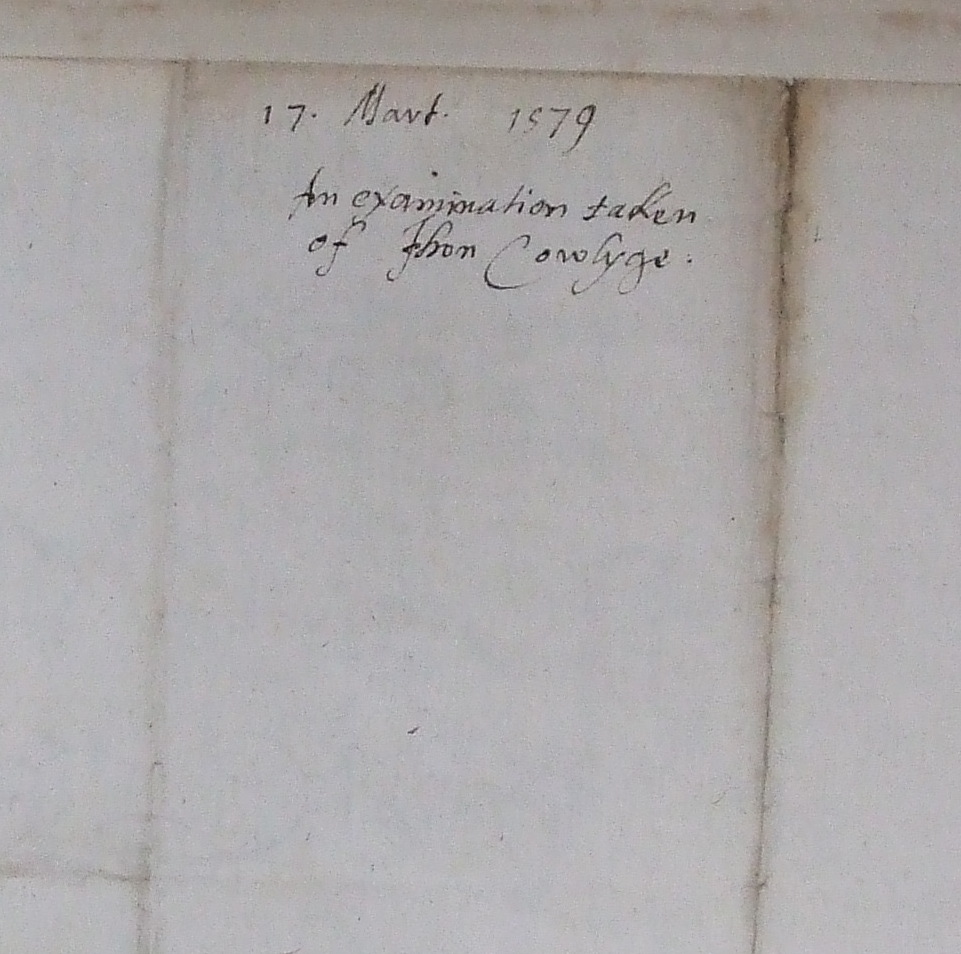 17. Mart. 1579
An examination taken
of Jhon Cowlyge.